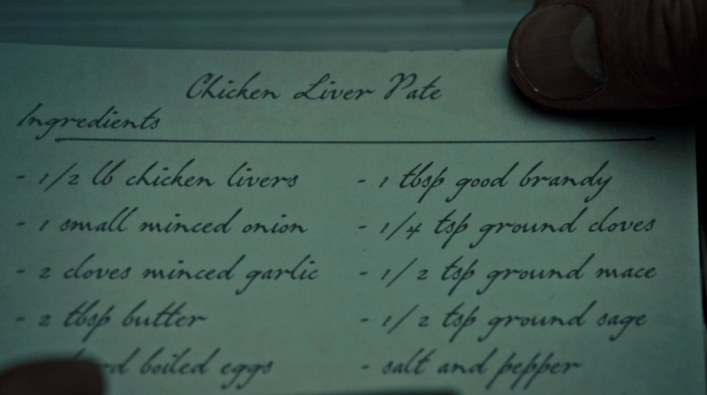 Chicken Liver Pate
Ingredients
- 1/2 lb chicken livers
- 1 small minced onion
- 2 cloves minced garlic
- 2 tbsp butter
boiled eggs
- 1 tbsp good brandy
- 1/4 tsp ground cloves
- 1/2 tsp ground mace
- 1/2 tsp ground sage
- salt and pepper